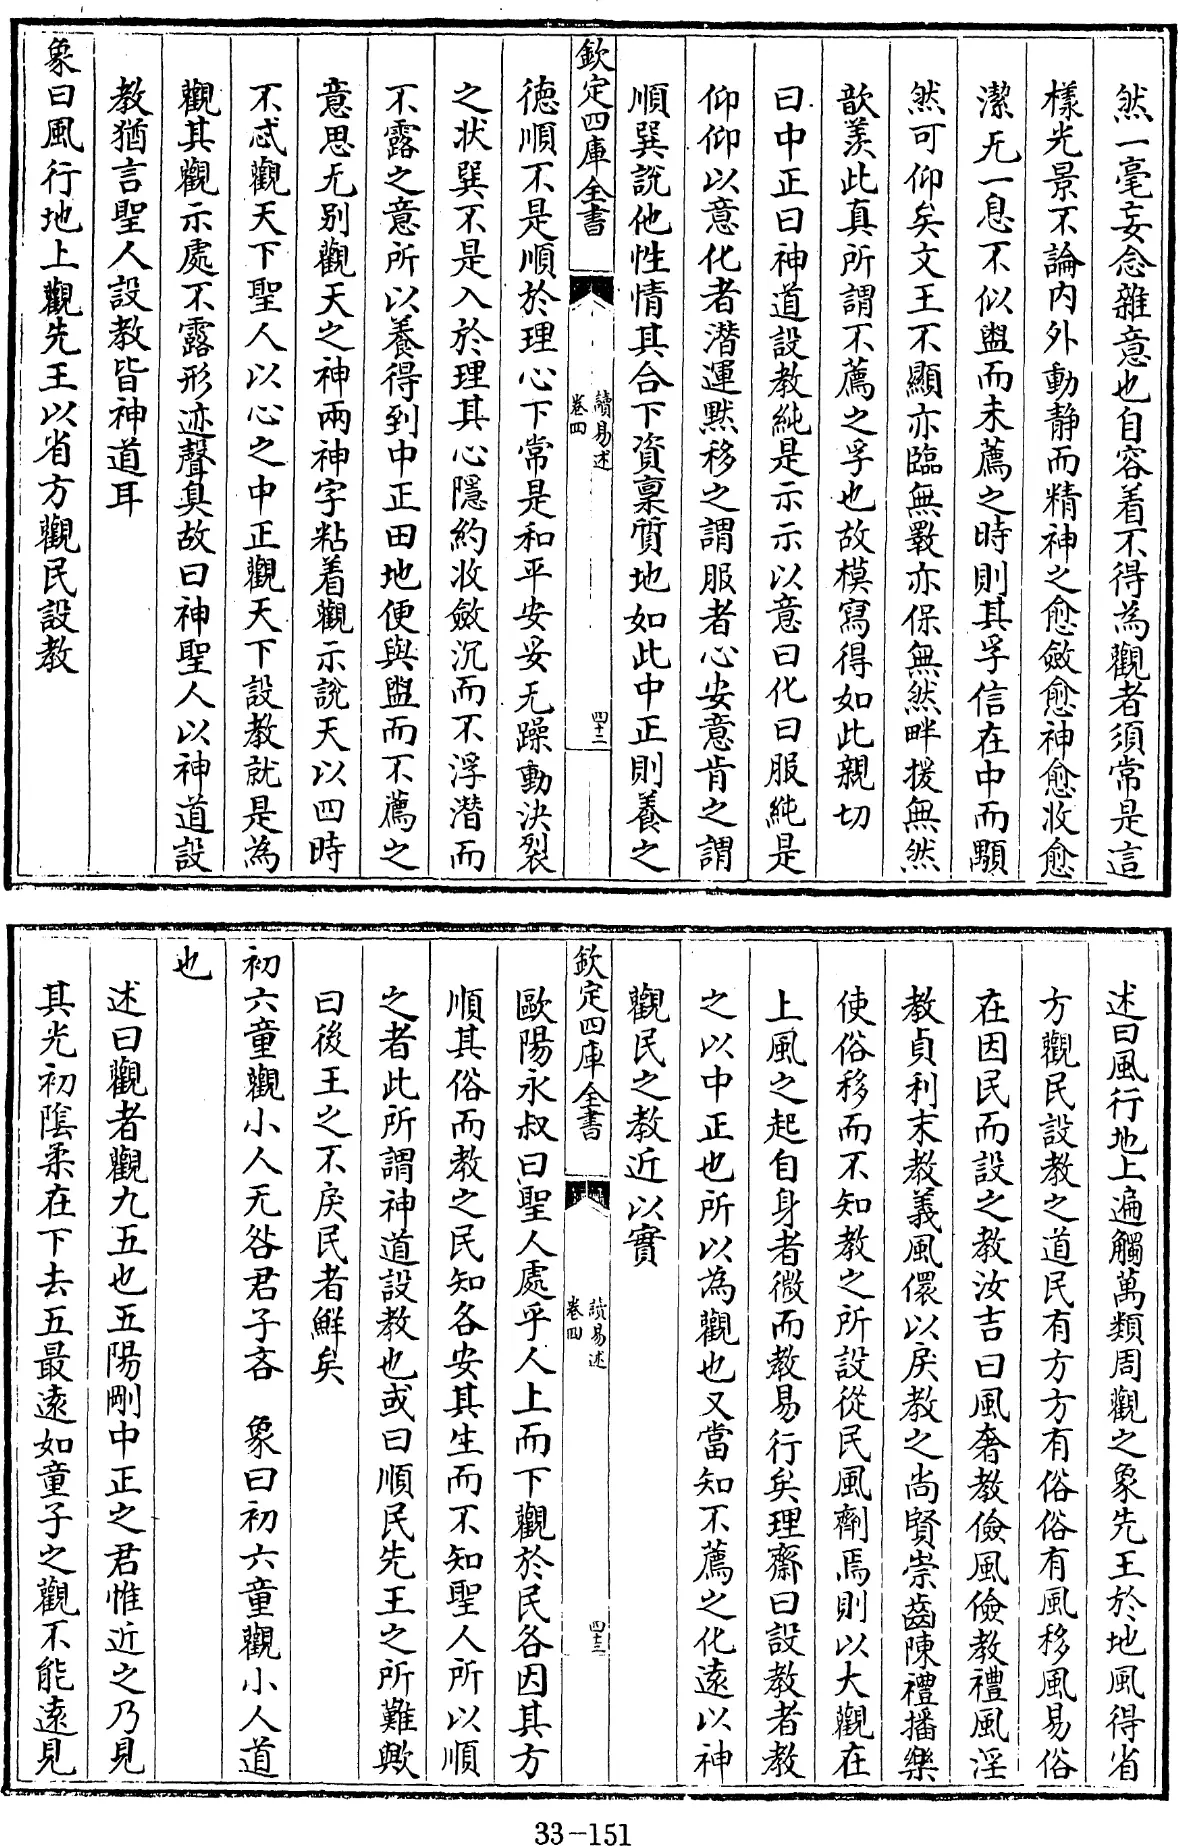 然一毫妄念雜意也自容着不得為觀者須常是這
樣光景不論内外動静而精神之愈斂愈神愈收愈
潔无一息不似盥而未薦之時則其孚信在中而顒
然可仰矣文王不顯亦臨無斁亦保無然畔援無然
歆羡此真所謂不薦之孚也故模寫得如此親切
曰中正曰神道設教純是示示以意曰化曰服純是
仰仰以意化者潛運黙移之謂服者心安意肯之謂
順巽說他性情其合下資稟質地如此中正則養之
欽定四庫全書
讀易述
卷四
四十二
德順不是順於理心下常是和平安妥无躁動決裂
之状巽不是入於理其心隱約收斂沉而不浮潛而
不露之意所以養得到中正田地便與盥而不薦之
意思无別觀天之神兩神字粘着觀示說天以四時
不忒觀天下聖人以心之中正觀天下設教就是為
觀其觀示處不露形迹聲臭故曰神聖人以神道設
教猶言聖人設教皆神道耳
象曰風行地上觀先王以省方觀民設教
述曰風行地上遍觸萬類周觀之象先王於地風得省
方觀民設教之道民有方方有俗俗有風移風易俗
在因民而設之教汝吉曰風奢教儉風儉教禮風淫
教貞利末教義風儇以戾教之尚賢崇齒陳禮播樂
使俗移而不知教之所設從民風劑焉則以大觀在
上風之起自身者微而教易行矣理齋曰設教者教
之以中正也所以為觀也又當知不薦之化遠以神
觀民之教近以實
欽定四庫全書
讀易述
卷四
四十三
歐陽永叔曰聖人處乎人上而下觀於民各因其方
順其俗而教之民知各安其生而不知聖人所以順
之者此所謂神道設教也或曰順民先王之所難歟
曰後王之不戾民者鮮矣
初六童觀小人无咎君子吝　象曰初六童觀小人道
也
述曰觀者觀九五也五陽剛中正之君惟近之乃見
其光初隂柔在下去五最逺如童子之觀不能遠見
33-151